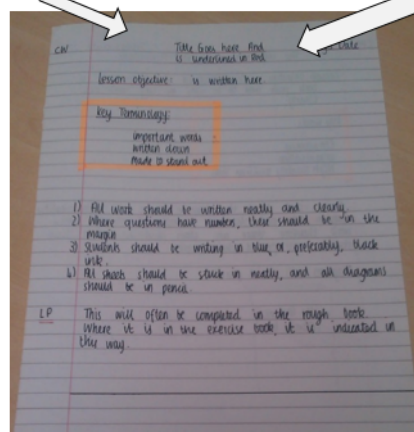 CW Title Goes here And Date
is underlined in Red
Lesson objective: is written here.
Key Terminology:
important words
written down
made to stand out
1) All work should be written neatly and clearly.
2) Where questions have numbers, these should be in the
margin
3) Students should be writing in blue, or, preferably, black
ink.
4) All sheets should be stuck in neatly, and all diagrams
should be in pencil.
LP This will often be completed in the rough book.
Where it is in the exercise book, it is indicated in
this way.